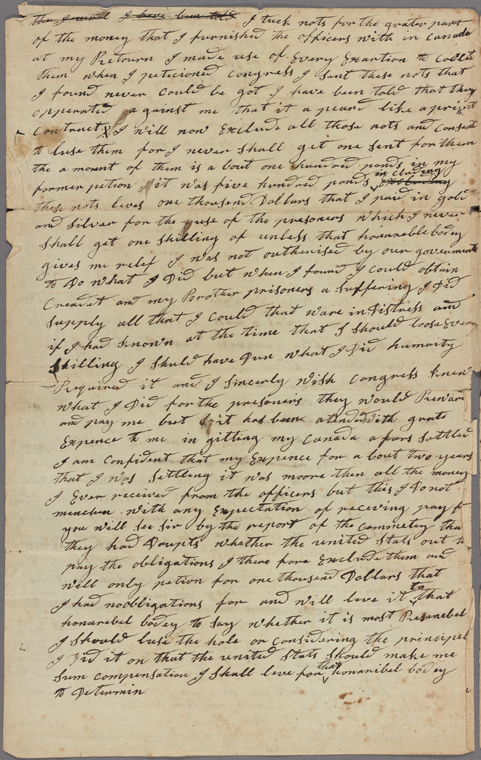 I tuck nots for the grater part
of the money that I furnished the officers with in Canada
at my Return I made use of Every Exartion to Colect
them when I peticioned Congress I sent these nots that
I found never could be got I have been told that they
opperated against me that it a peard like a
Contract & I will now Exclude all those nots and Consent
to luse them for I never shall get one sent for them
the a mount of them is a bout one hundred ponds in my
former petion it was five hundred ponds in clading
these nots leves one thousand Dollars that I paid in gold
and silver for the use of the presoners which I never
shall get one skilling of unless that honarable bodey
gives me relief I was not outherised by our goverment
to Do what I Did but when I found I could obtain
Creadet and my Brother prisoners a suffering I Did
supply all that I could that ware in Distress and
if I had known at the time that I should loose Every
skilling I shuld have Dun what I Did humanity
Required it and I sincerly wish Congress knew
what I Did for the presoners they would Reward
and pay me but it has been atended with grate
Expence to me in gitting my Canada afars settled
I am Confident that my Expence for a bout two years
that I was settling it was moore then all the money
I Ever received from the officers but this I Do not
menchen with any Expectation of receiving pay for
you will see sir by the report of the Commetey that
they had Doupts whether the united Stats out to
pay the obligations I there fore Exclude them and
will only petion for one thousand Dollars that
I had noobligations for and will leve it to that
honarebel bodey to say whether it is most Resenebel
I should luse the hole or Considering the principel
I Did it on that the united Stats should make me
sum compensation I shall leve for that honaribel bodey
to Determin